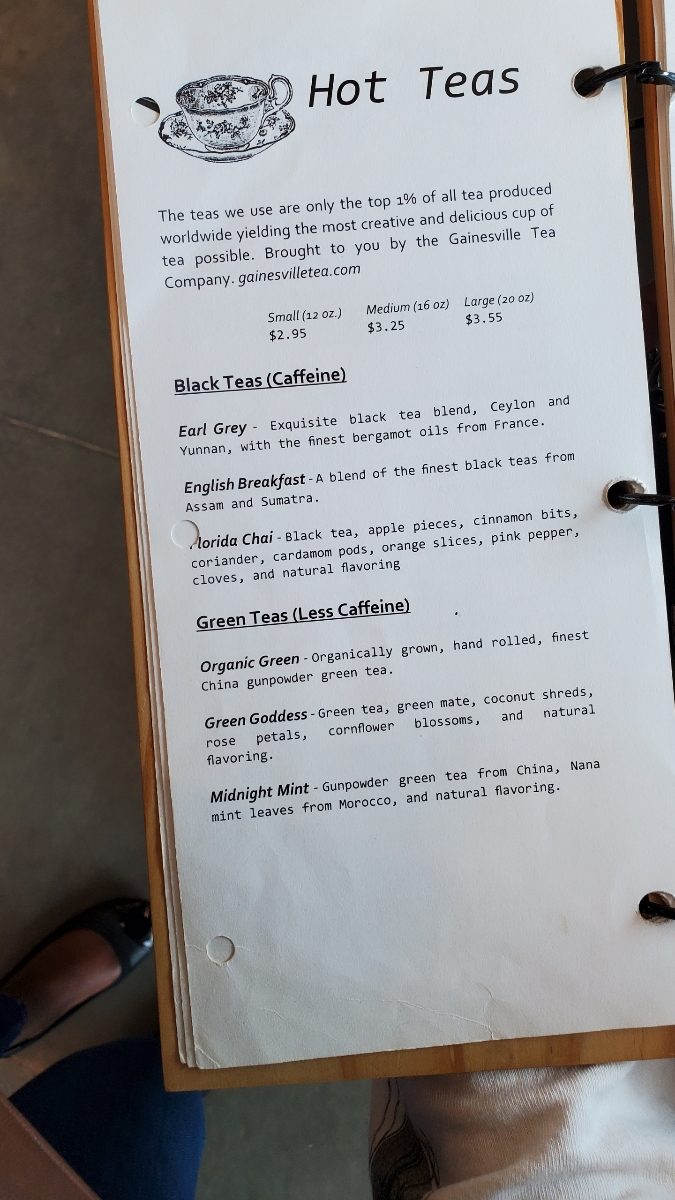 Hot Teas
The teas we use are only the top 1% of all tea produced
worldwide yielding the most creative and delicious cup of
tea possible. Brought to you by the Gainesville Tea
Company. gainesvilletea.com
Small (12 oz.) Medium (16 oz) Large (20 oz)
$2.95 $3.25 $3.55
Black Teas (Caffeine)
Earl Grey - Exquisite black tea blend, Ceylon and
Yunnan, with the finest bergamot oils from France.
English Breakfast - A blend of the finest black teas from
Assam and Sumatra.
lorida Chai - Black tea, apple pieces, cinnamon bits,
coriander, cardamom pods, orange slices, pink pepper,
cloves, and natural flavoring
Green Teas (Less Caffeine)
Organic Green - Organically grown, hand rolled, finest
China gunpowder green tea.
Green Goddess - Green tea, green mate, coconut shreds,
rose petals, cornflower blossoms, and natural
flavoring.
Midnight Mint - Gunpowder green tea from China, Nana
mint leaves from Morocco, and natural flavoring.